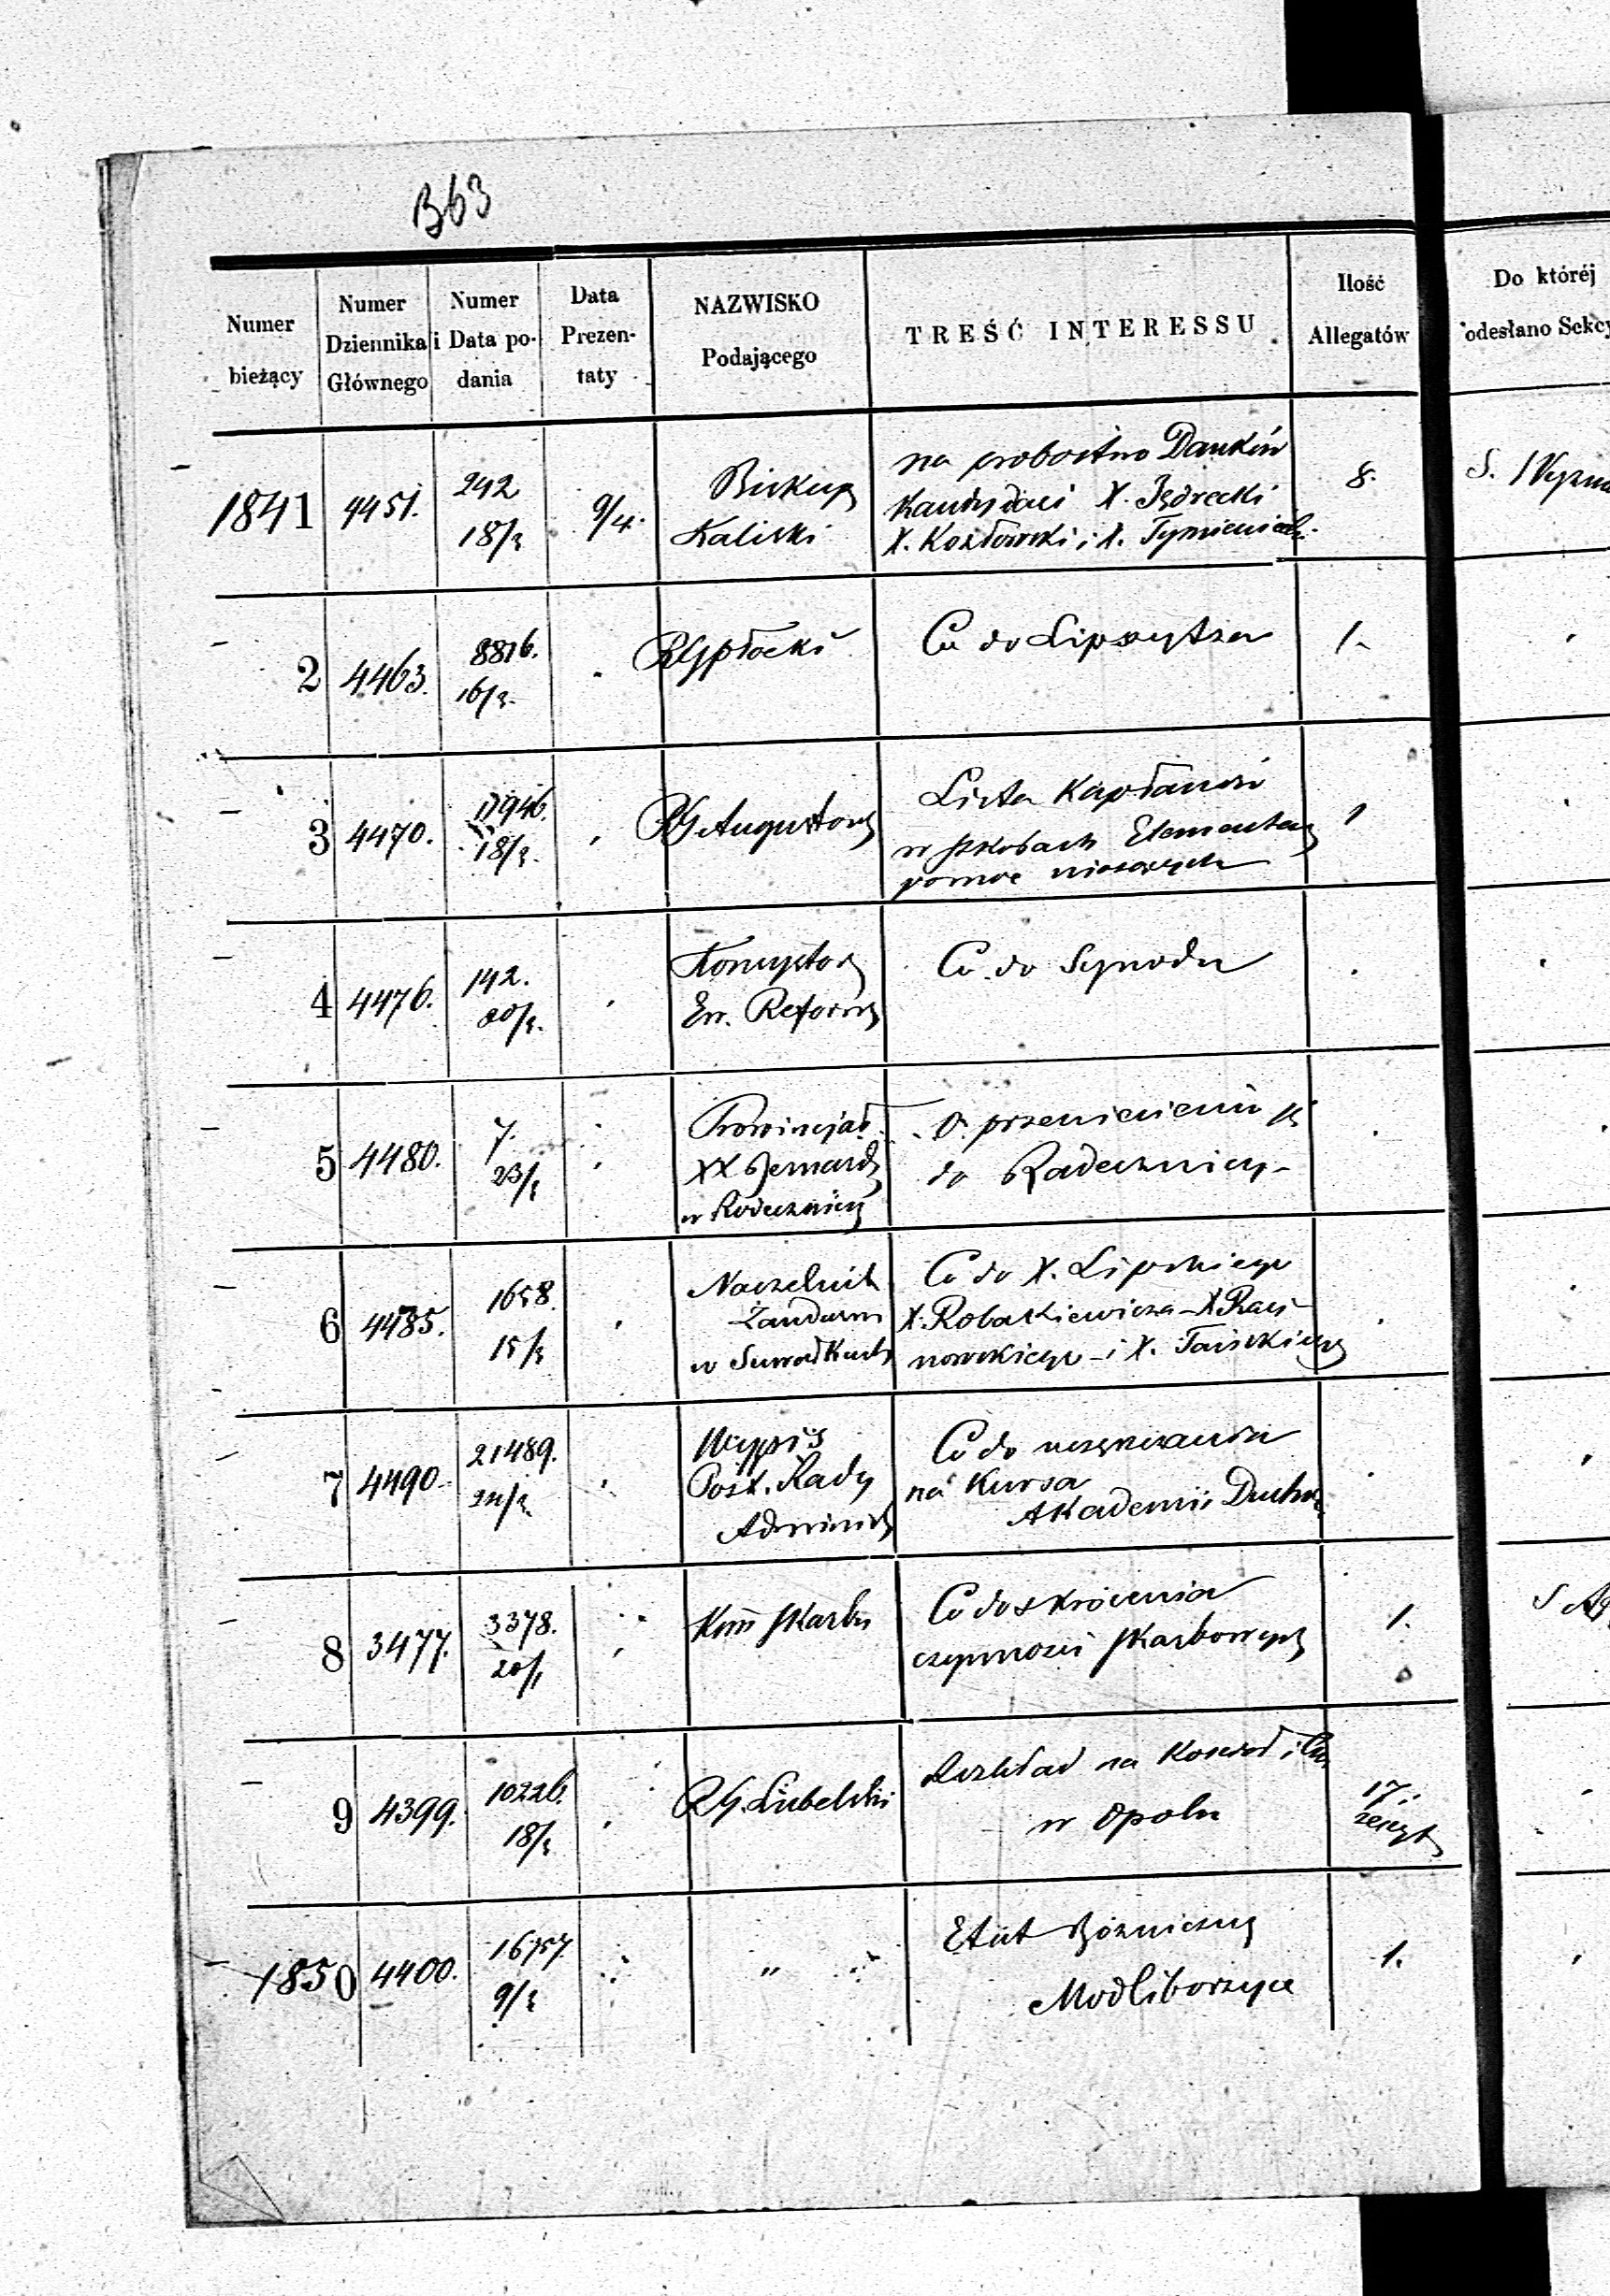 B63
Numer bieżący
Numer Dziennika Głównego
Numer i Data podania
Data Prezentaty
NAZWISKO Podającego
TREŚĆ INTERESSU
Ilość Allegatów
Do któréj odesłano Sekcy
1841 4451. 242 18/3 9/4. Biskup Kaliski
na probostwo Danków
Kandydaci X. Jędrecki
X. Kozłowski i X. Tymieniecki
8.
2 4463. 8816. 16/3. RG Płocki
Co do Lipszytza
1.
3 4470. 18/3. RG Augustow
Lista Kapłanów
w szkołach Elementar
pomoc niosących
1
4 4476. 142. 20/3. Konsystor
Ew. Reform
Co do Synodu
5 4480. 7. 23/3 Prowincjał
XX Bernard
w Radecznicy
O przeniesieniu
do Radecznicy
6 4485. 1658. 15/3 Naczelnik
Żandarm
w Suwałkach
Co do X. Lipskiego
X. Robaszkiewicza – X Raci-
nowskiego – i X.
7 4490. 21489. Wypis
Post. Rady
Administ
Co do uczęszczania
na Kursa
Akademii Duchw
8 3477. 3378. 20/1 Kom Skarbu
Co do skrócenia
czynności skarbowych
1.
9 4399. 10226. 18/3 R.G. Lubelski
Rozkład na Kościoł i
w Opolu
17.
zeszyt
1850 4400. 16757. 9/3 "
Etat Bożniczny
Modliborzyce
1.